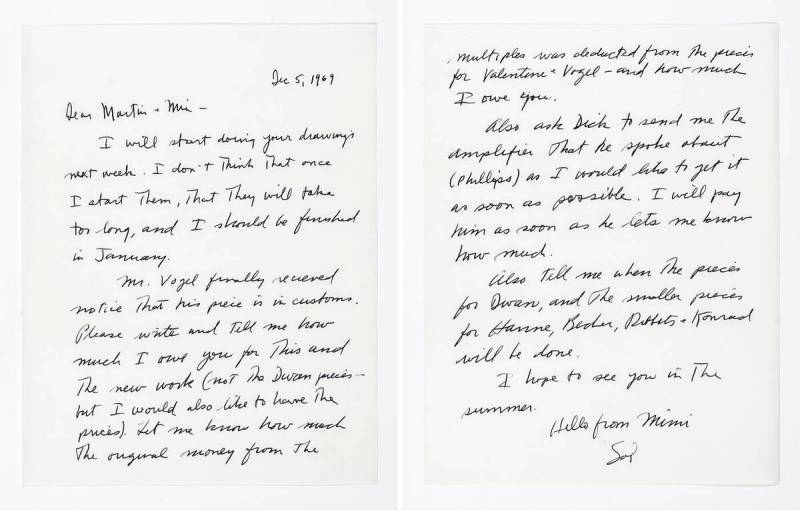 Dec 5, 1969
Dear Martin + Mia —
I will start doing your drawings
next week. I don't think that once
I start them, that they will take
too long, and I should be finished
in January.
Mr. Vogel finally recieved
notice that his piece is in customs.
Please write and tell me how
much I owe you for this and
the new work (not the Dwan pieces —
but I would also like to have the
prices). Let me know how much
the original money from the
multiples was deducted from the pieces
for Valentine + Vogel — and how much
I owe you.
Also ask Dick to send me the
amplifier that he spoke about
(Phillips) as I would like to get it
as soon as possible. I will pay
him as soon as he lets me know
how much.
Also tell me when the pieces
for Dwan, and the smaller pieces
for Hanne, Becher, + Konrad
will be done.
I hope to see you in the
summer.
Hello from Mimi
Sol